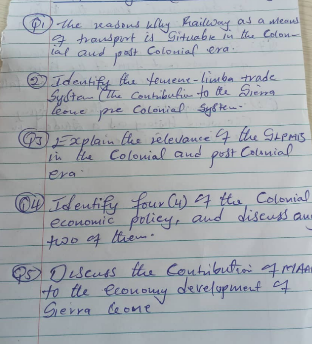 Q1) The reasons why Railway as a means
of transport is Situable in the Colon-
ial and post Colonial era.
② Identify the Yemene-limba trade
System (The Contribution to the Sierra
leone pre Colonial System.
Q3 Explain the relevance of the SLPMB
in the Colonial and post Colonial
era.
Q4 Identify four (4) of the Colonial
economic policy, and discuss any
two of them.
Q5) Discuss the Contribution of
to the economy development of
Sierra leone